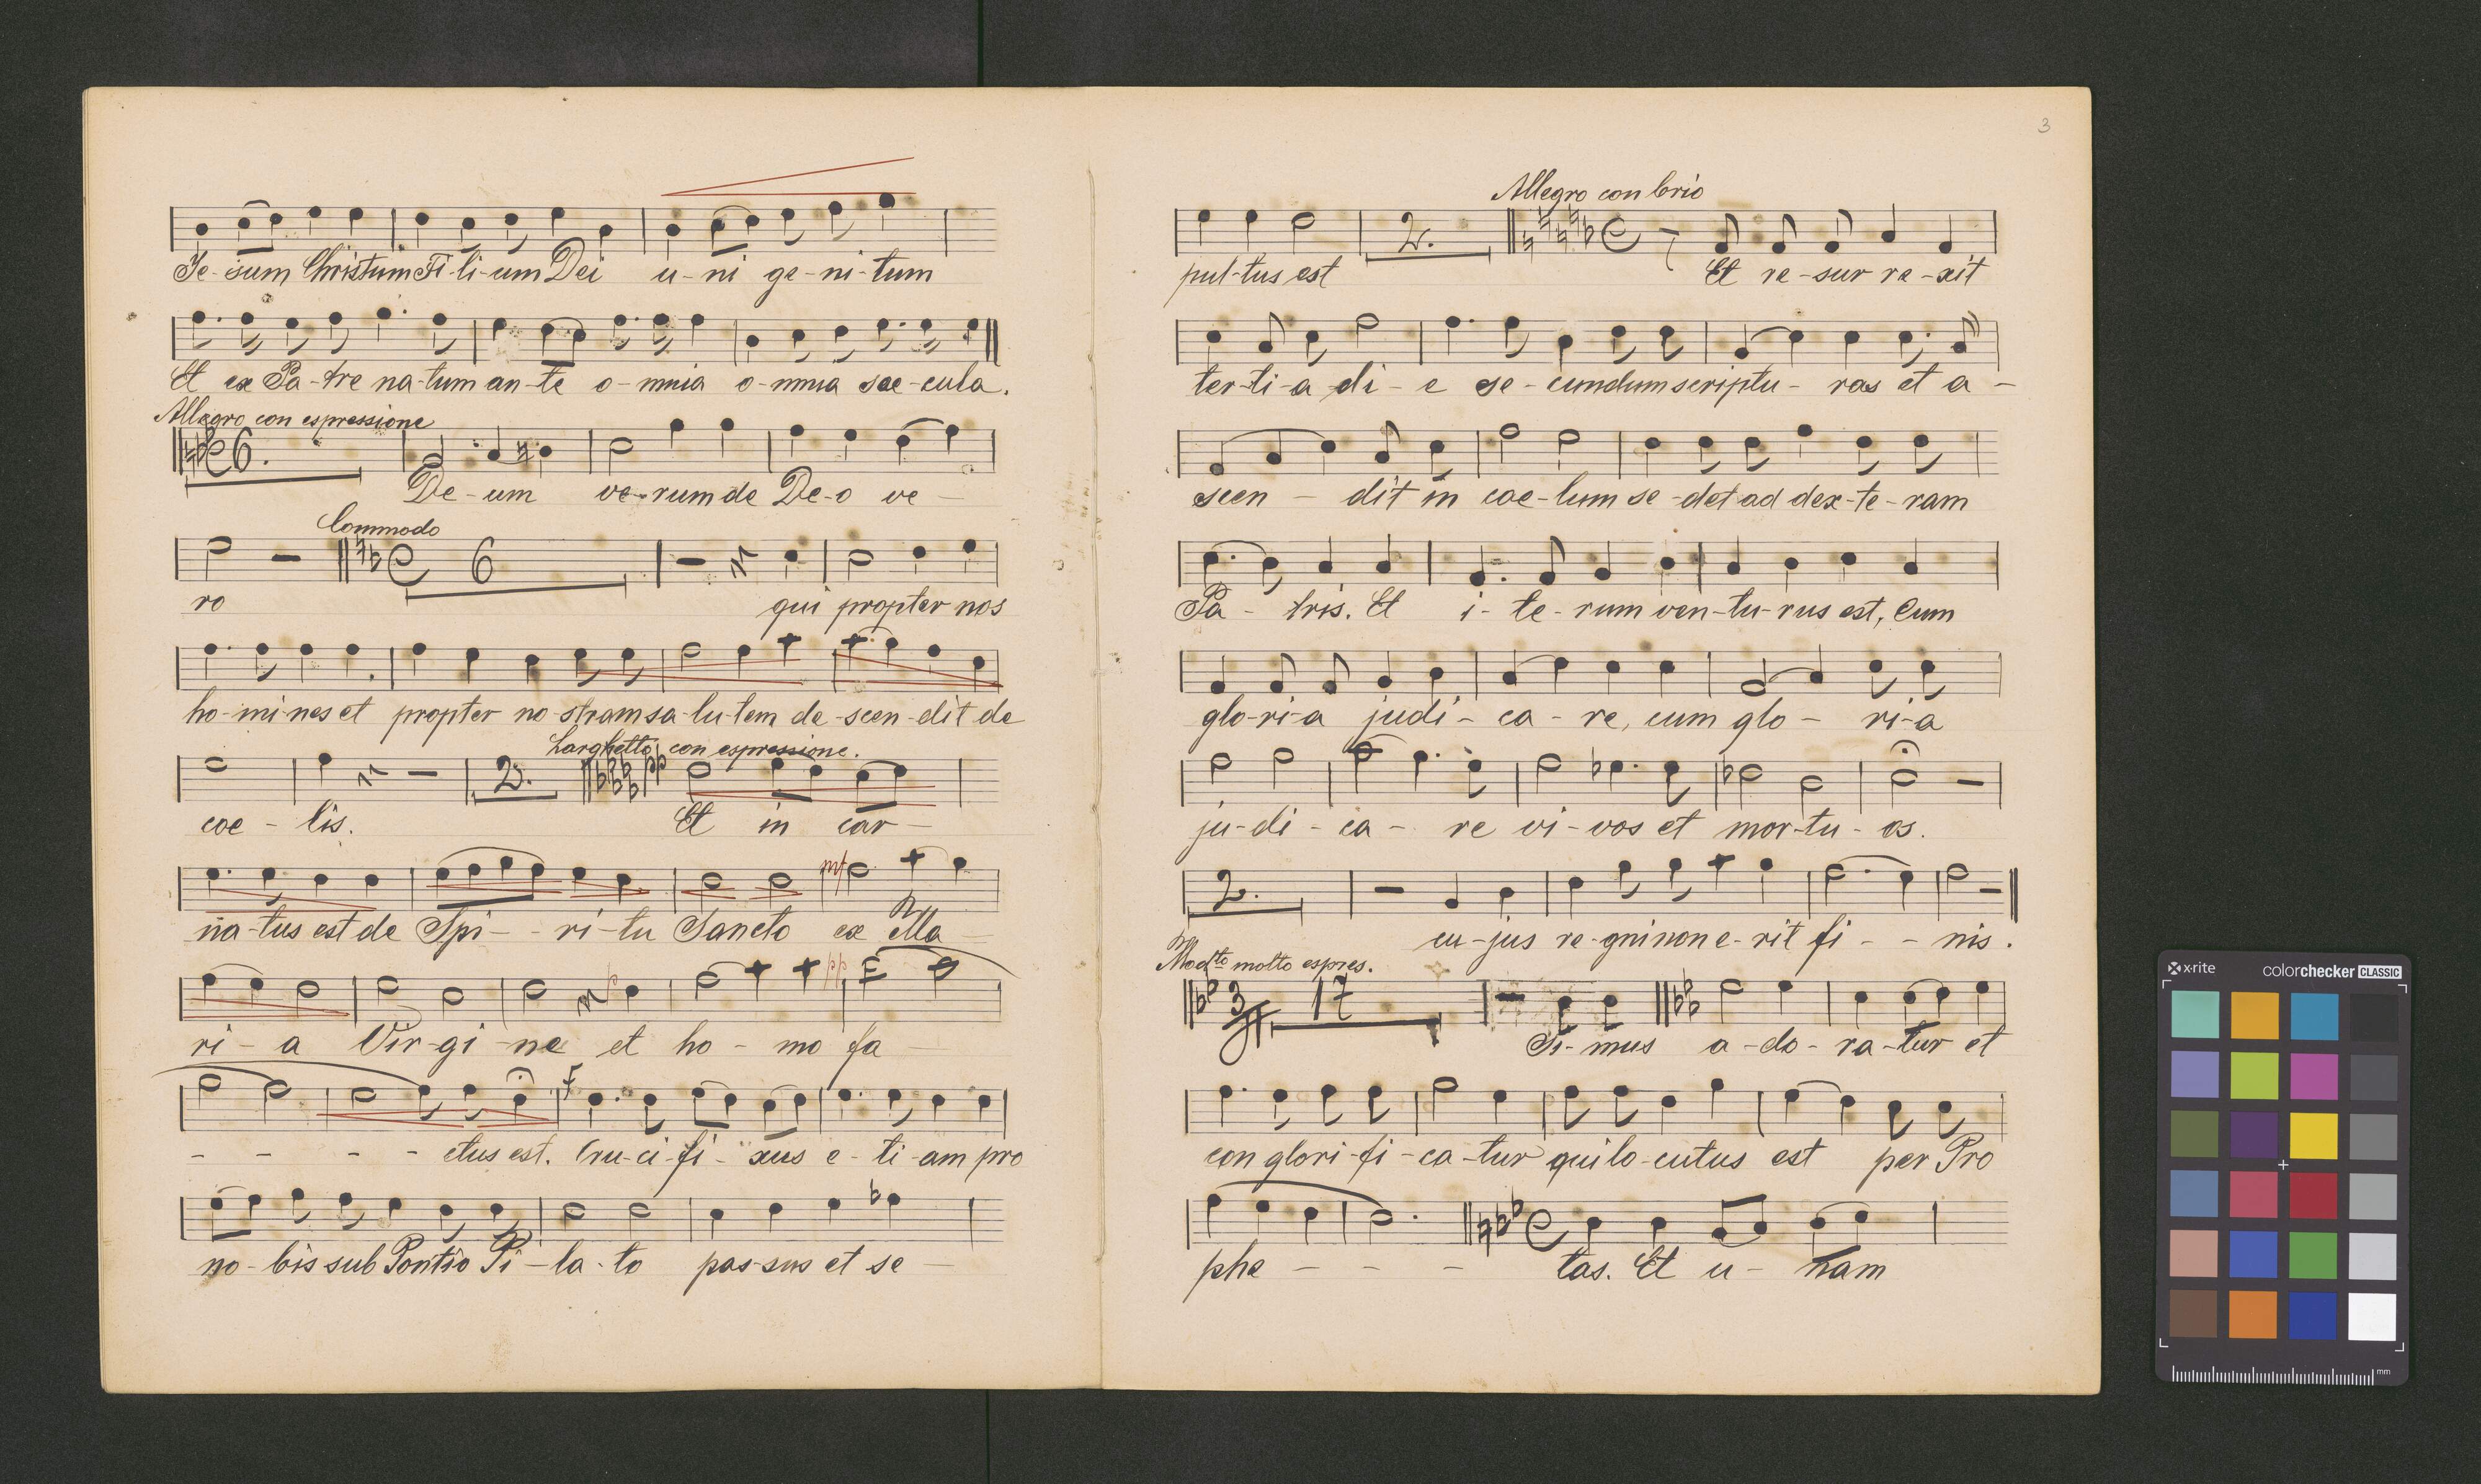 Je-sum Christum Fi-li-um Dei u-ni ge-ni-tum
Et ex Pa-tre na-tum an-te o-mnia o-mnia sae-cula.
Allegro con espressione
6.
De-um ve-rum de De-o ve-
Commodo
6
ro qui propter nos
ho-mi-nes et propter no-stram sa-lu-tem de-scen-dit de
Larghetto con espressione.
2. pp
coe-lis. Et in car-
mf
na-tus est de Spi-- ri-tu Sancto ex Ma
p pp
ri-a Vir-gi-ne et ho-mo fa-
f
- - - - ctus est. Cru-ci-fi-xus e-ti-am pro
no-bis sub Pontio Pi-la-to passus et se-
3
Allegro con brio
2.
pul-tus est Et re-sur re-xit
ter-ti-a di-e se-cundum scriptu-ras et a-
scen-dit in coe-lum se-det ad dex-te-ram
Pa-tris. Et i-te-rum ven-tu-rus est, cum
glo-ri-a judi-ca-re, cum glo-ri-a
ju-di-ca-re vi-vos et mor-tu-os.
2.
cu-jus re-gni non e-rit fi-- nis.
Modto molto espres.
3 17
Si-mus a-do-ra-tur et
con glori-fi-ca-tur qui lo-cutus est per Pro
phe - - - tas. Et u-nam
x-rite colorchecker CLASSIC
mm